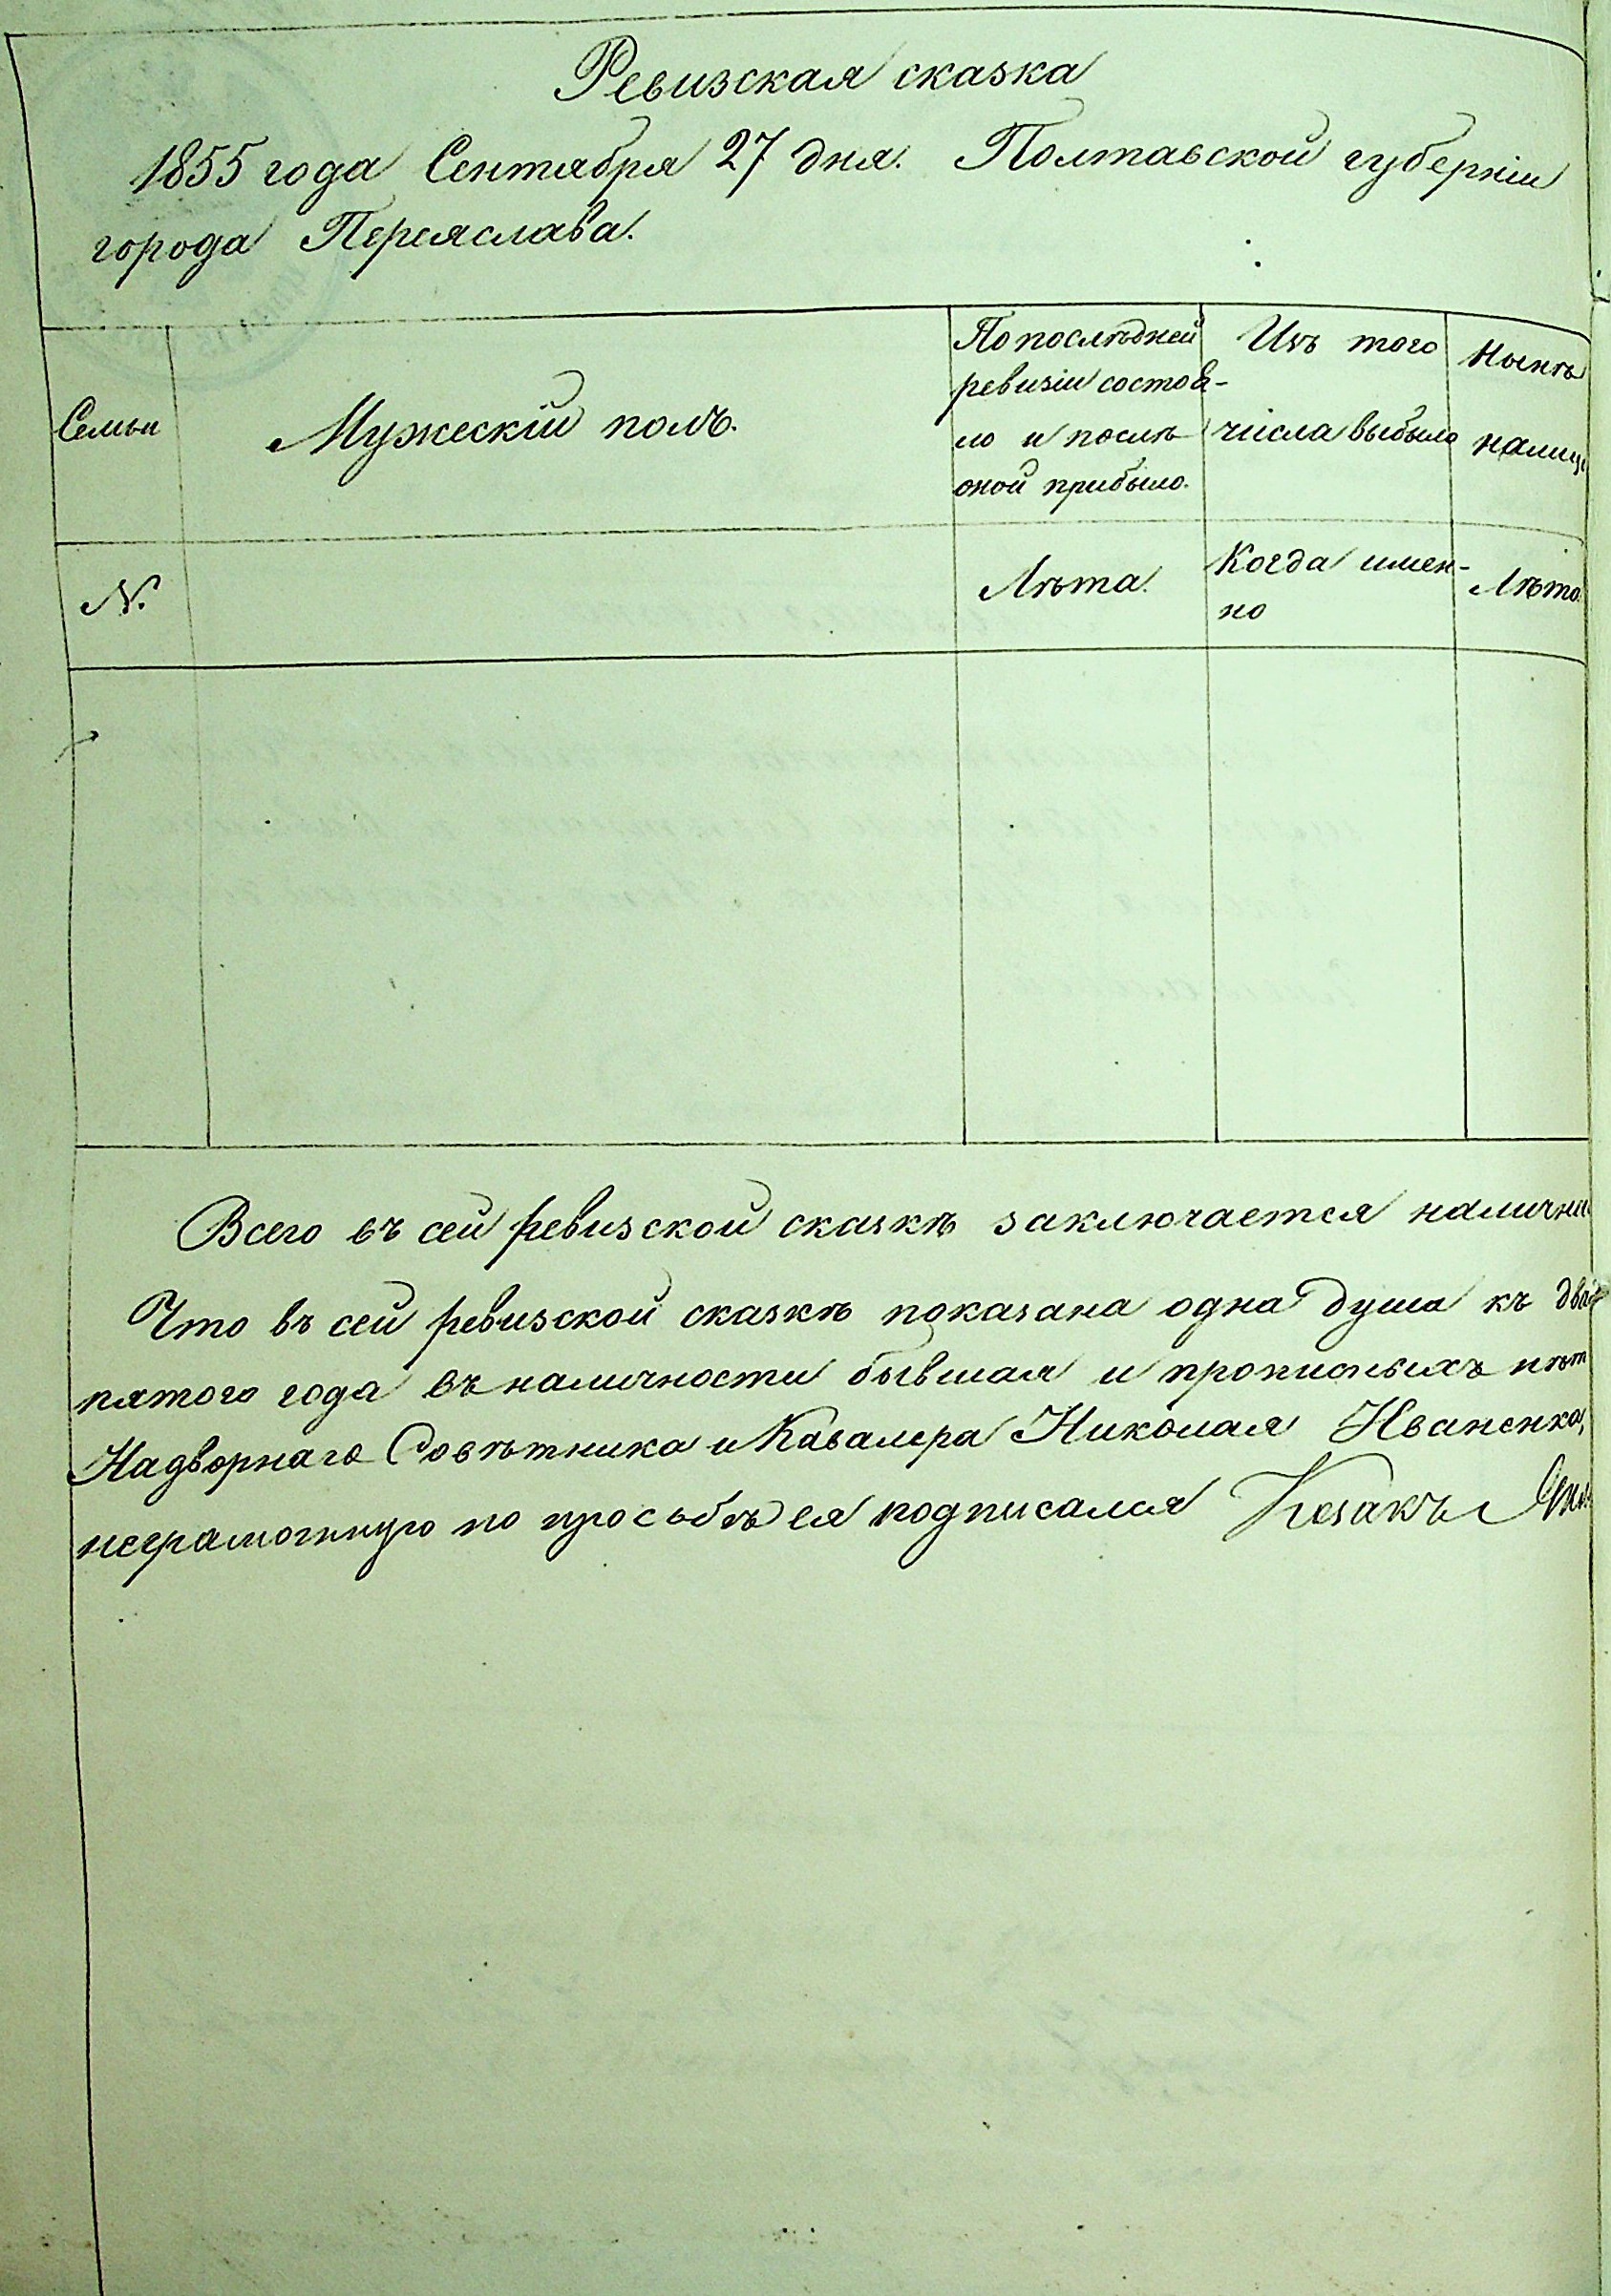 Ревизская сказка
1855 года Сентября 27 дня. Полтавской губерніи
города Переяслава.
Семьи
Мужескій полъ.
По послѣдней
ревизіи состоя-
ло и послѣ
оной прибыло.
Изъ того
числа выбыло
Нынѣ
налиц
№.
Лѣта.
Когда имен-
но
Лѣта
Всего въ сей ревизской сказкѣ заключается налично
Что въ сей ревизской сказкѣ показана одна душа къ два
пятого года въ наличности бывшая и прописныхъ нѣт
Надворнаго Совѣтника и Кавалера Николая Иваненка,
неграмотную по просьбѣ ея подписался Козакъ